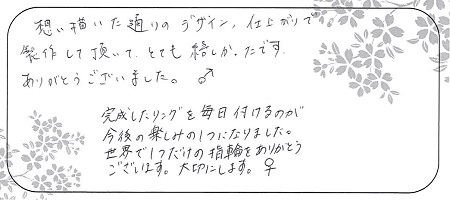 想い描いた通りのデザイン、仕上がりで
製作して頂いて、とても嬉しかったです。
ありがとうございました。 ♂
完成したリングを毎日付けるのが
今後の楽しみの1つになりました。
世界で1つだけの指輪をありがとう
ございます。大切にします。♀